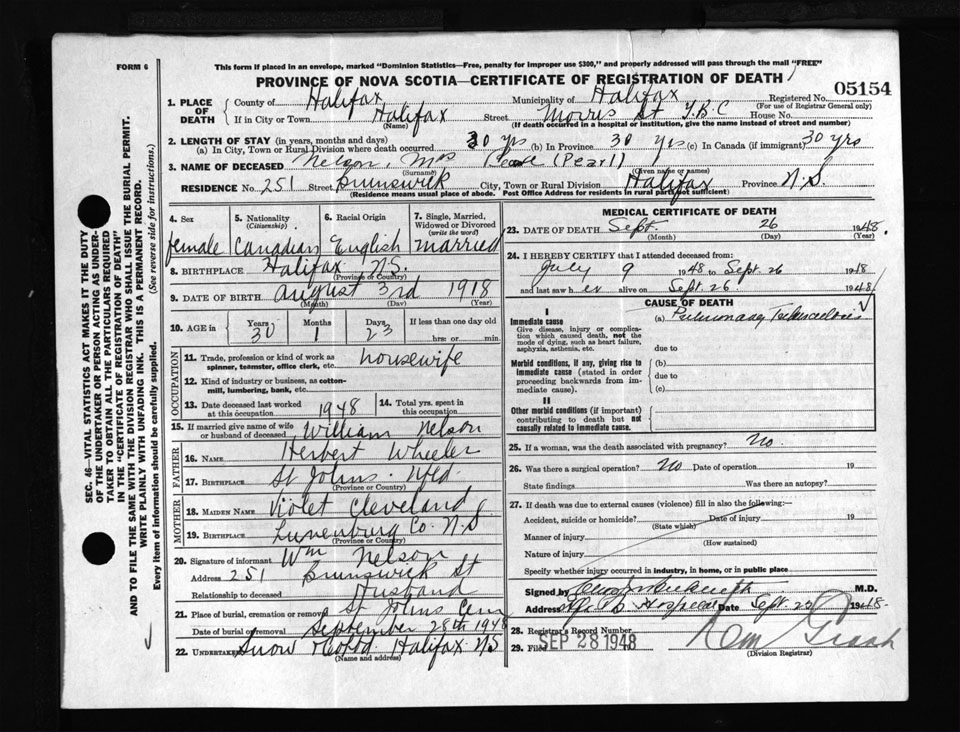 FORM 6
This form if placed in an envelope, marked "Dominion Statistics—Free, penalty for improper use $300," and properly addressed will pass through the mail "FREE"
PROVINCE OF NOVA SCOTIA—CERTIFICATE OF REGISTRATION OF DEATH
Registered No. 05154
(For use of Registrar General only)
1. PLACE OF DEATH
County of Halifax Municipality of Halifax
If in City or Town Halifax Street Morris St T.B.C House No.
(Name) (If death occurred in a hospital or institution, give the name instead of street and number)
2. LENGTH OF STAY (in years, months and days)
(a) In City, Town or Rural Division where death occurred 30 yrs (b) In Province 30 yrs (c) In Canada (if immigrant) 30 yrs
3. NAME OF DECEASED Nelson, Mrs (Pearl)
(Surname) (Given name or names)
RESIDENCE No. 251 Street Brunswick City, Town or Rural Division Halifax Province N.S.
(Residence means usual place of abode. Post Office Address for residents in rural parts not sufficient)
4. Sex
female
5. Nationality (Citizenship)
Canadian
6. Racial Origin
English
7. Single, Married, Widowed or Divorced (write the word)
married
8. BIRTHPLACE Halifax N.S.
(Province or Country)
9. DATE OF BIRTH August 3rd 1918
(Month) (Day) (Year)
10. AGE in
Years 30
Months 1
Days 23
If less than one day
hrs: or min.
OCCUPATION
11. Trade, profession or kind of work as spinner, teamster, office clerk, etc. housewife
12. Kind of industry or business, as cotton-mill, lumbering, bank, etc.
13. Date deceased last worked at this occupation 1948
14. Total yrs. spent in this occupation
15. If married give name of wife or husband of deceased William Nelson
FATHER
16. Name Herbert Wheeler
17. Birthplace St Johns Nfld.
(Province or Country)
MOTHER
18. Maiden Name Violet Cleveland
19. Birthplace Lunenburg Co. N.S.
(Province or Country)
20. Signature of informant Wm Nelson
Address 251 Brunswick St
Relationship to deceased Husband
21. Place of burial, cremation or removal St Johns Cem
Date of burial or removal September 28th 1948
22. UNDERTAKER Snow Halifax N.S
(Name and address)
MEDICAL CERTIFICATE OF DEATH
23. DATE OF DEATH Sept. 26 1948.
(Month) (Day) (Year)
24. I HEREBY CERTIFY that I attended deceased from:
July 9 1948 to Sept. 26 1948
and last saw her alive on Sept. 26 1948
CAUSE OF DEATH
I
Immediate cause
Give disease, injury or complication which caused death, not the mode of dying, such as heart failure, asphyxia, asthenia, etc.
(a) Pulmonary Tuberculosis
due to
Morbid conditions, if any, giving rise to immediate cause (stated in order proceeding backwards from immediate cause).
(b)
due to
(c)
II
Other morbid conditions (if important) contributing to death but not causally related to immediate cause.
25. If a woman, was the death associated with pregnancy? No
26. Was there a surgical operation? No Date of operation 19
State findings Was there an autopsy?
27. If death was due to external causes (violence) fill in also the following:—
Accident, suicide or homicide? Date of injury 19
(State which)
Manner of injury
(How sustained)
Nature of injury
Specify whether injury occurred in industry, in home, or in public place
Signed by M.D.
Address Hospital Date Sept. 1948.
28. Registrar's Record Number
29. Filed SEP 28 1948
(Division Registrar)
SEC. 46—VITAL STATISTICS ACT MAKES IT THE DUTY
OF THE UNDERTAKER OR PERSON ACTING AS UNDERTAKER TO OBTAIN ALL THE PARTICULARS REQUIRED
IN THE "CERTIFICATE OF REGISTRATION OF DEATH"
AND TO FILE THE SAME WITH THE DIVISION REGISTRAR WHO SHALL ISSUE THE BURIAL PERMIT.
WRITE PLAINLY WITH UNFADING INK. THIS IS A PERMANENT RECORD.
Every item of information should be carefully supplied. (See reverse side for instructions.)